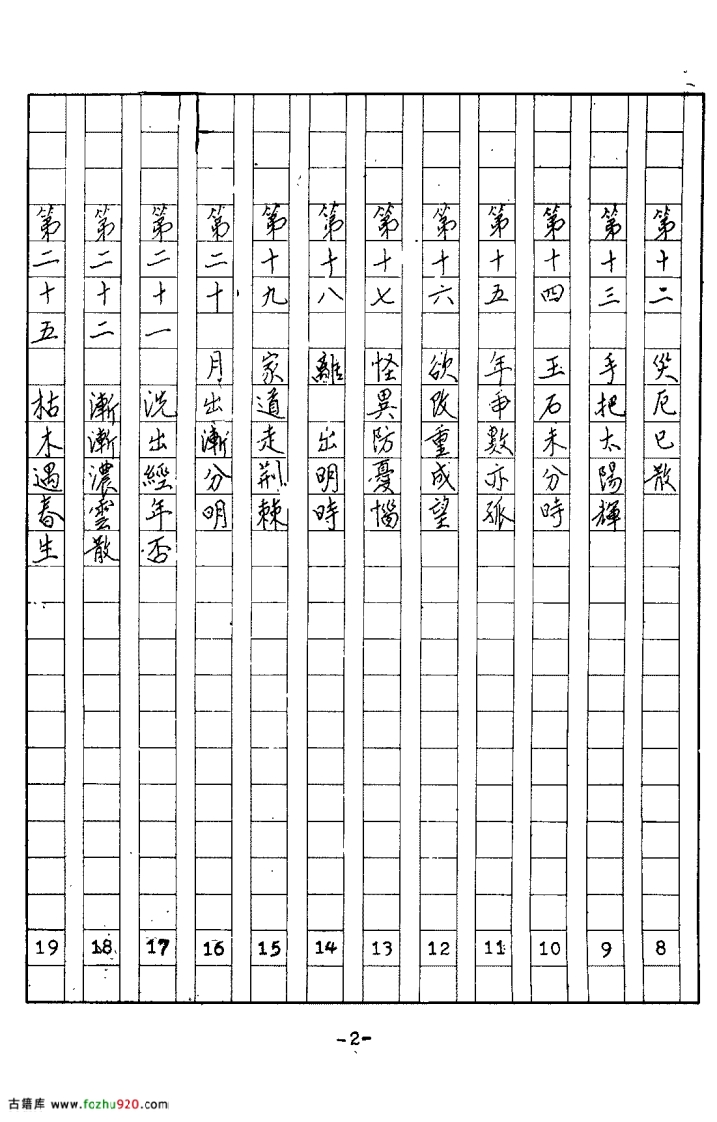 第十二 災厄已散 8
第十三 手把太陽輝 9
第十四 玉石未分時 10
第十五 年申數亦孤 11
第十六 欲改重成望 12
第十七 怪異防憂惱 13
第十八 離 出明時 14
第十九 家道走荆棘 15
第二十 月出漸分明 16
第二十一 洗出經年否 17
第二十二 漸漸濃雲散 18
第二十五 枯木遇春生 19
-2-
古籍库 www.fozhu920.com